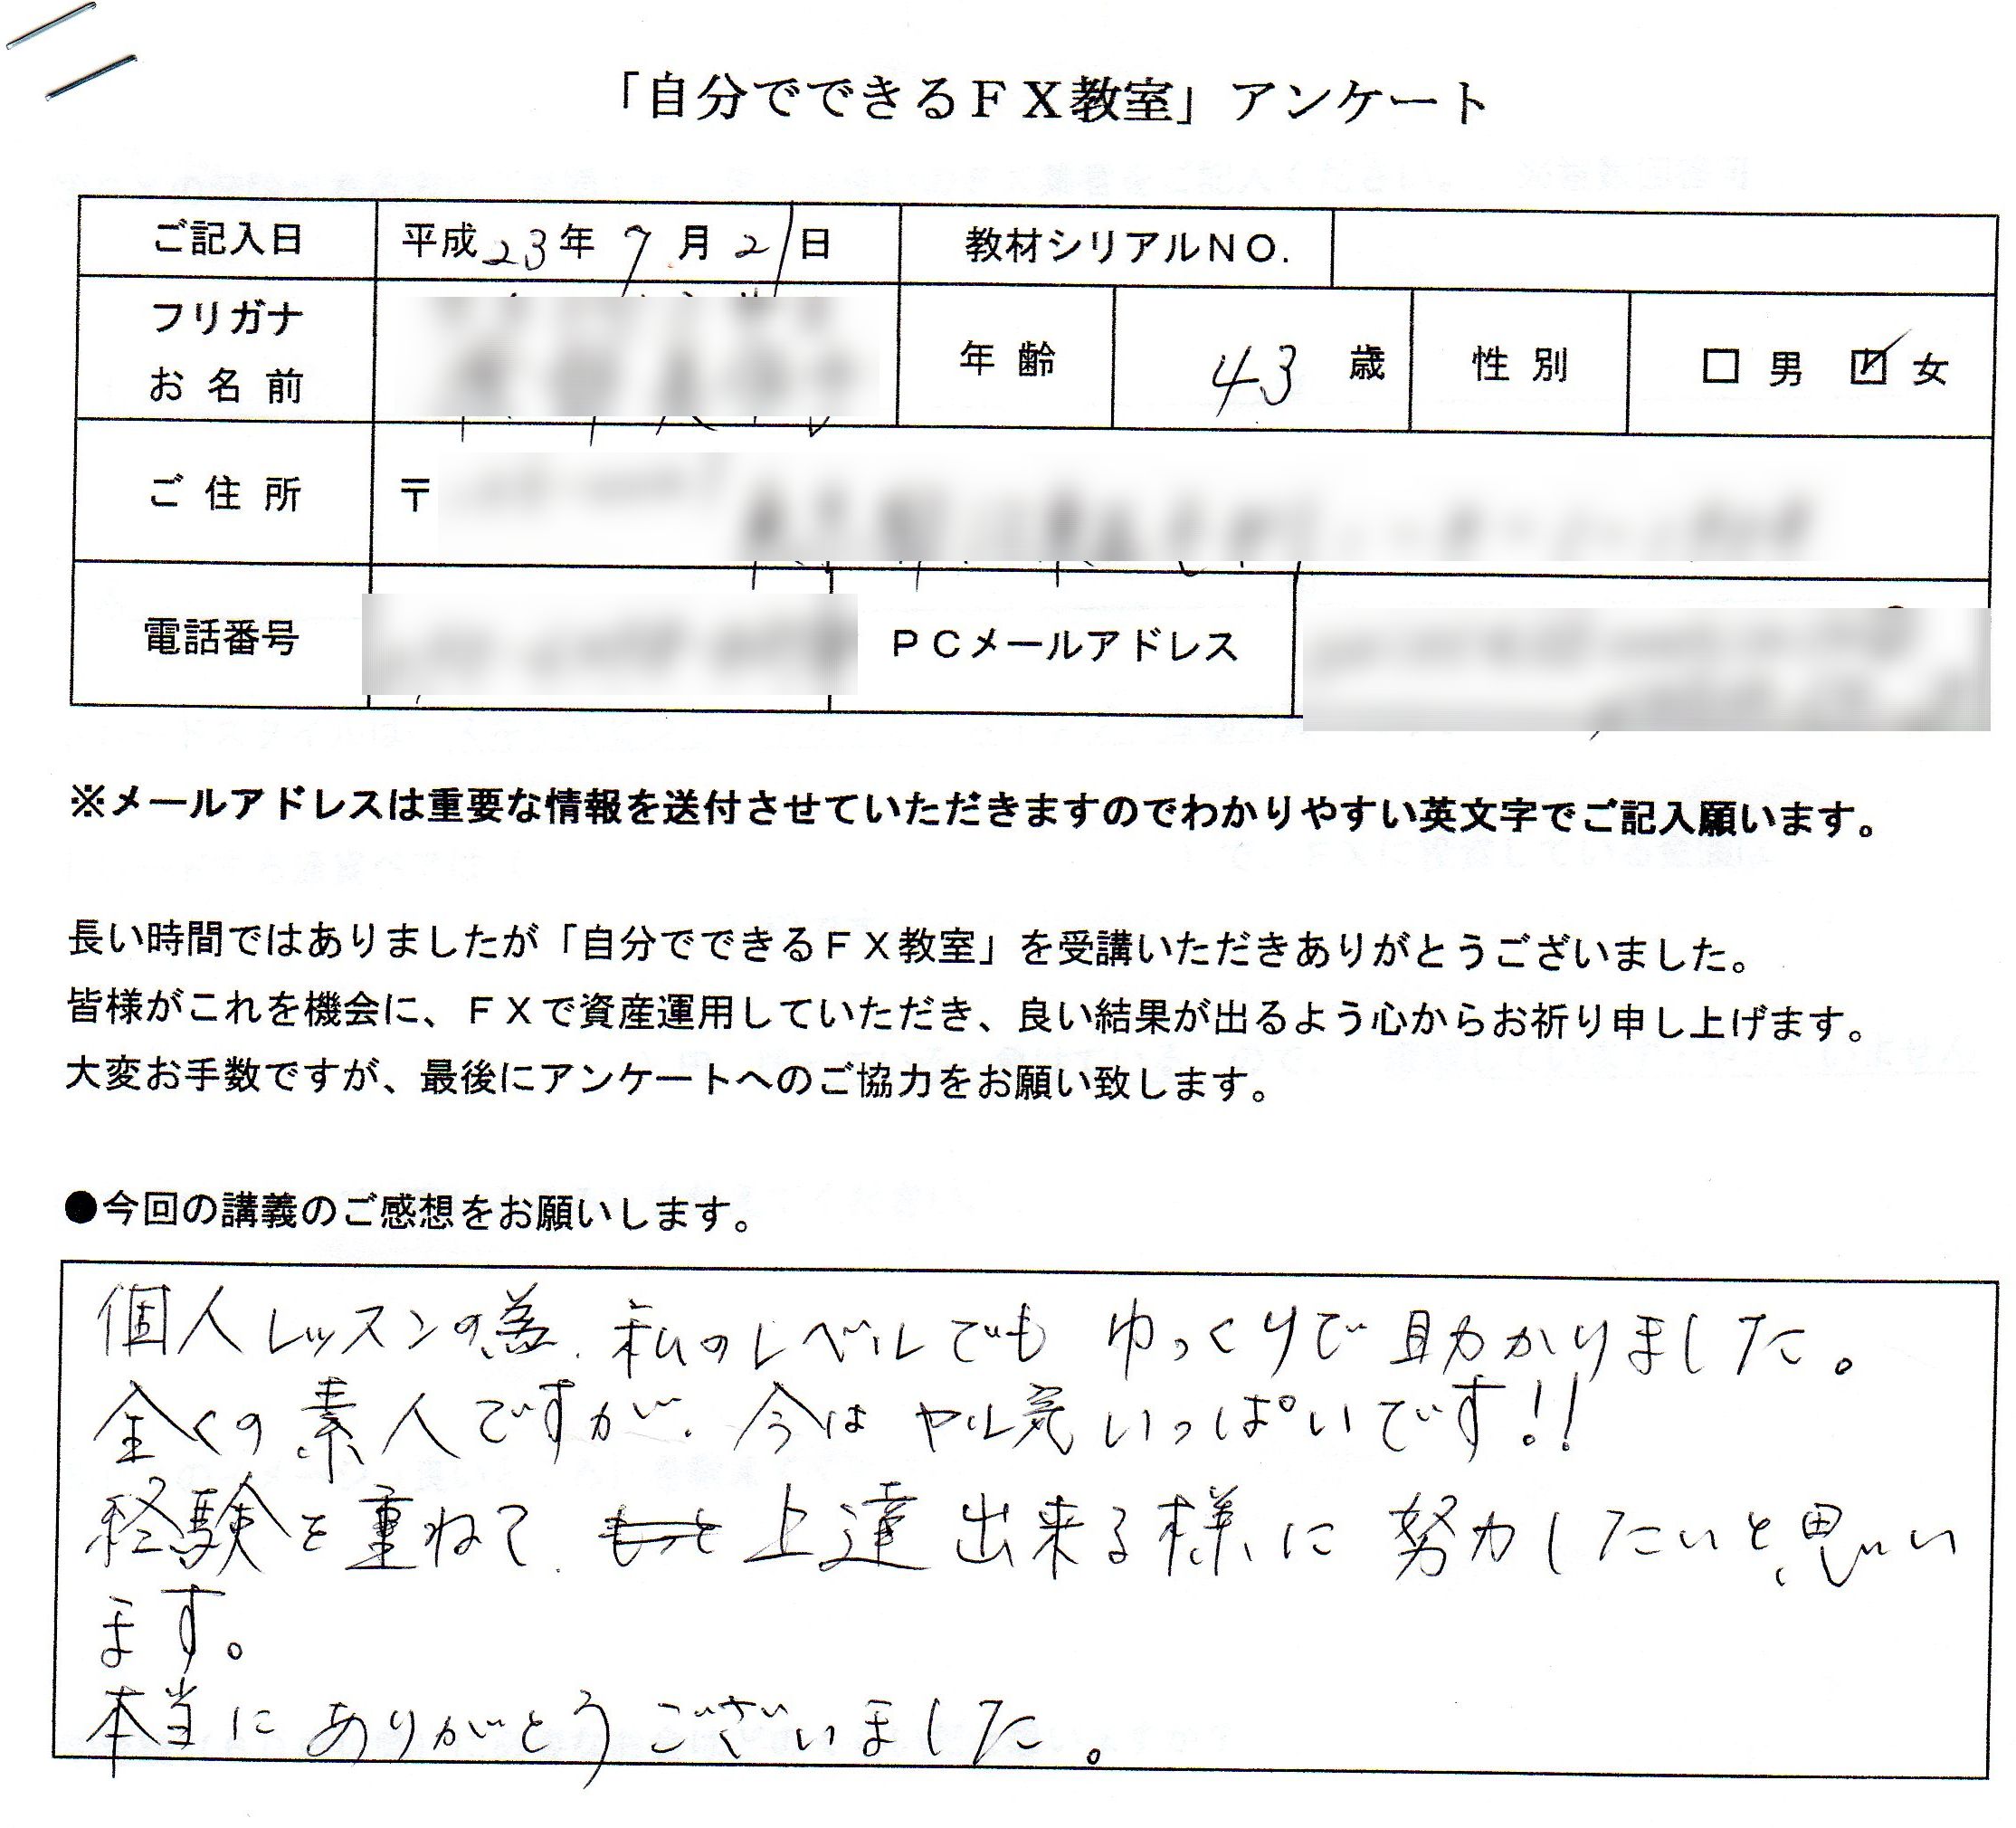 「自分でできるＦＸ教室」アンケート
ご記入日 平成23年7月21日 教材シリアルＮＯ.
フリガナ
お名前 年齢 43歳 性別 □男 ☑女
ご住所 〒
電話番号 ＰＣメールアドレス
※メールアドレスは重要な情報を送付させていただきますのでわかりやすい英文字でご記入願います。
長い時間ではありましたが「自分でできるＦＸ教室」を受講いただきありがとうございました。
皆様がこれを機会に、ＦＸで資産運用していただき、良い結果が出るよう心からお祈り申し上げます。
大変お手数ですが、最後にアンケートへのご協力をお願い致します。
●今回の講義のご感想をお願いします。
個人レッスンの為、私のレベルでも ゆっくりで 助かりました。
全くの素人ですが、今は ヤル気いっぱいです!!
経験を重ねて、もっと 上達出来る様に 努力したいと思い
ます。
本当に ありがとうございました。